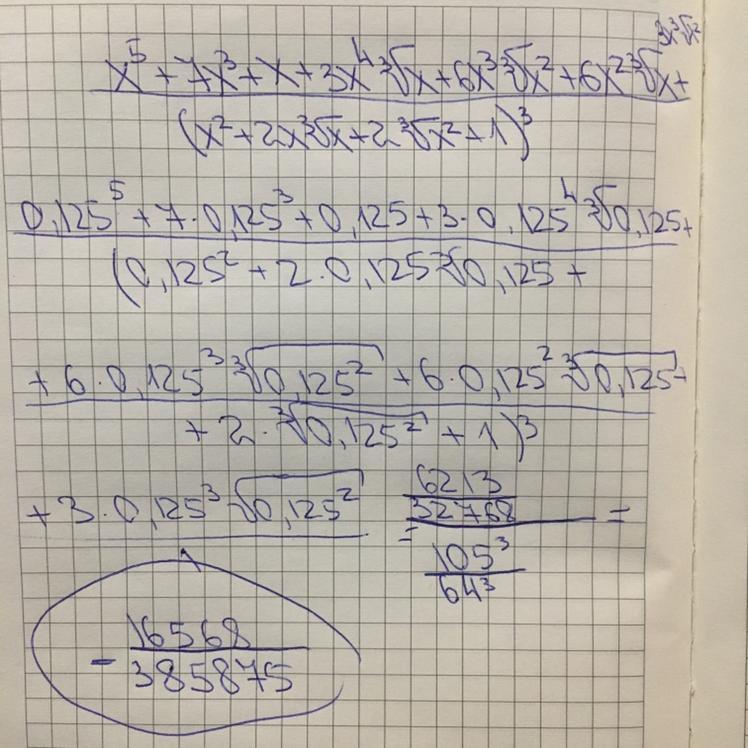 3x∛x²
x⁵ + 7x³ + x + 3x⁴∛x + 6x³∛x² + 6x²∛x +
(x² + 2x∛x + 2∛x² + 1)³
0,125⁵ + 7·0,125³ + 0,125 + 3·0,125⁴∛0,125 +
(0,125² + 2·0,125∛0,125 +
+ 6·0,125³∛0,125² + 6·0,125²∛0,125 +
+ 2·∛0,125² + 1)³
+ 3·0,125³√0,125²
6213
32768
= =
105³
64³
1
16568
-
385875